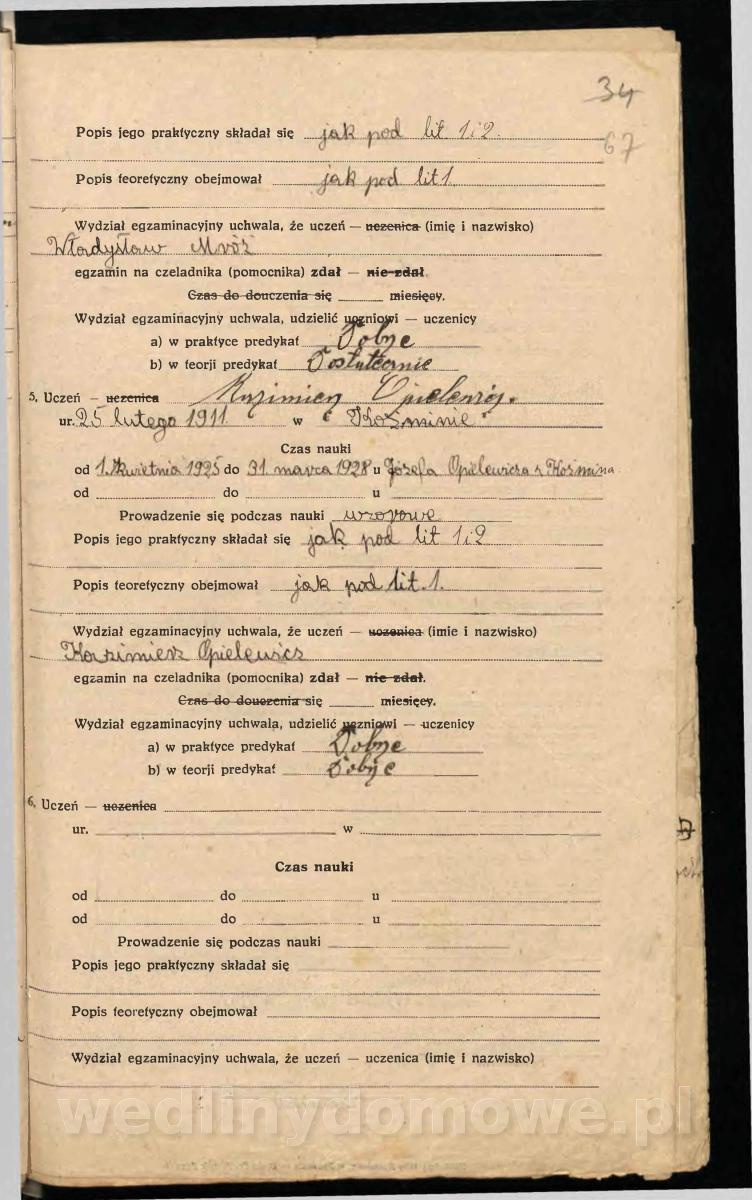 34
67
Popis jego praktyczny składał się jak pod lit 1 i 2.
Popis teoretyczny obejmował jak pod lit 1.
Wydział egzaminacyjny uchwala, że uczeń — uczenica (imię i nazwisko)
Władysław Mróz
egzamin na czeladnika (pomocnika) zdał — nie zdał.
Czas do douczenia się miesięcy.
Wydział egzaminacyjny uchwala, udzielić uczniowi — uczenicy
a) w praktyce predykat Dobrze
b) w teorji predykat Dostatecznie
5. Uczeń — uczenica Kazimierz Opielewicz.
ur. 25 lutego 1911 w Koźminie
Czas nauki
od 1. kwietnia 1925 do 31. marca 1928 u Józefa Opielewicza z Koźmina
od do u
Prowadzenie się podczas nauki wzorowe
Popis jego praktyczny składał się jak pod lit 1 i 2
Popis teoretyczny obejmował jak pod lit. 1.
Wydział egzaminacyjny uchwala, że uczeń — uczenica (imie i nazwisko)
Kazimierz Opielewicz
egzamin na czeladnika (pomocnika) zdał — nie zdał.
Czas do douczenia się miesięcy.
Wydział egzaminacyjny uchwala, udzielić uczniowi — uczenicy
a) w praktyce predykat Dobrze
b) w teorji predykat Dobrze
6. Uczeń — uczenica
ur. w
Czas nauki
od do u
od do u
Prowadzenie się podczas nauki
Popis jego praktyczny składał się
Popis teoretyczny obejmował
Wydział egzaminacyjny uchwala, że uczeń — uczenica (imię i nazwisko)
wedlinydomowe.pl